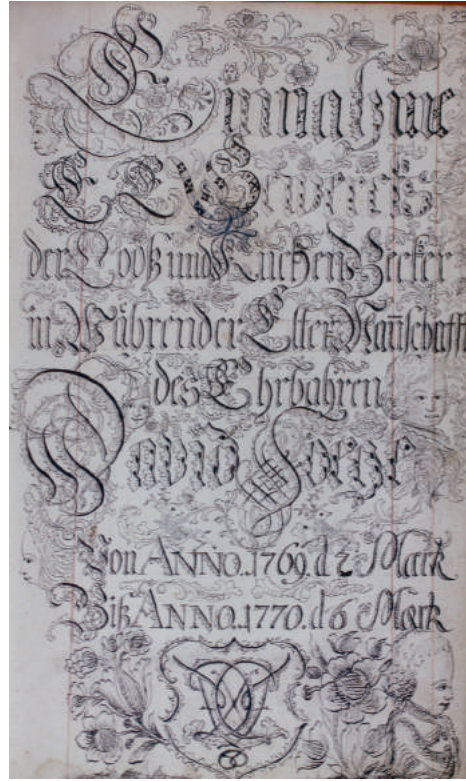 Einnahme
E. E. Gewercks
der Looß und Kuchen Becker
in Währender Elter Mañschafft
des Ehrbahren
David
Von ANNO. 1769. d 2 Mart
Biß ANNO. 1770. d 6 Mart